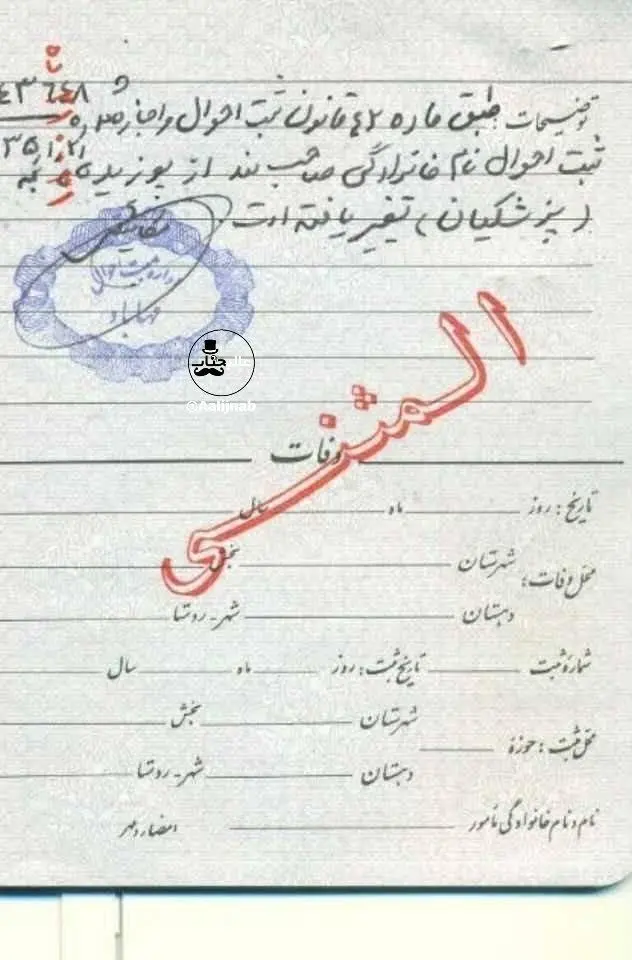 توضیحات طبق ماده ٤٢ قانون ثبت احوال و اجازه
ثبت احوال نام خانوادگی صاحب سند از
(پزشکیان) تغییر یافته است.
مهاباد
جناب
@Aalijnab
المثنی
وفات
تاریخ: روز ماه سال
محل وفات: شهرستان بخش
دهستان شهر-روستا
شماره ثبت تاریخ ثبت: روز ماه سال
محل ثبت: حوزه شهرستان بخش
دهستان شهر-روستا
نام و نام خانوادگی مأمور امضاء و مهر